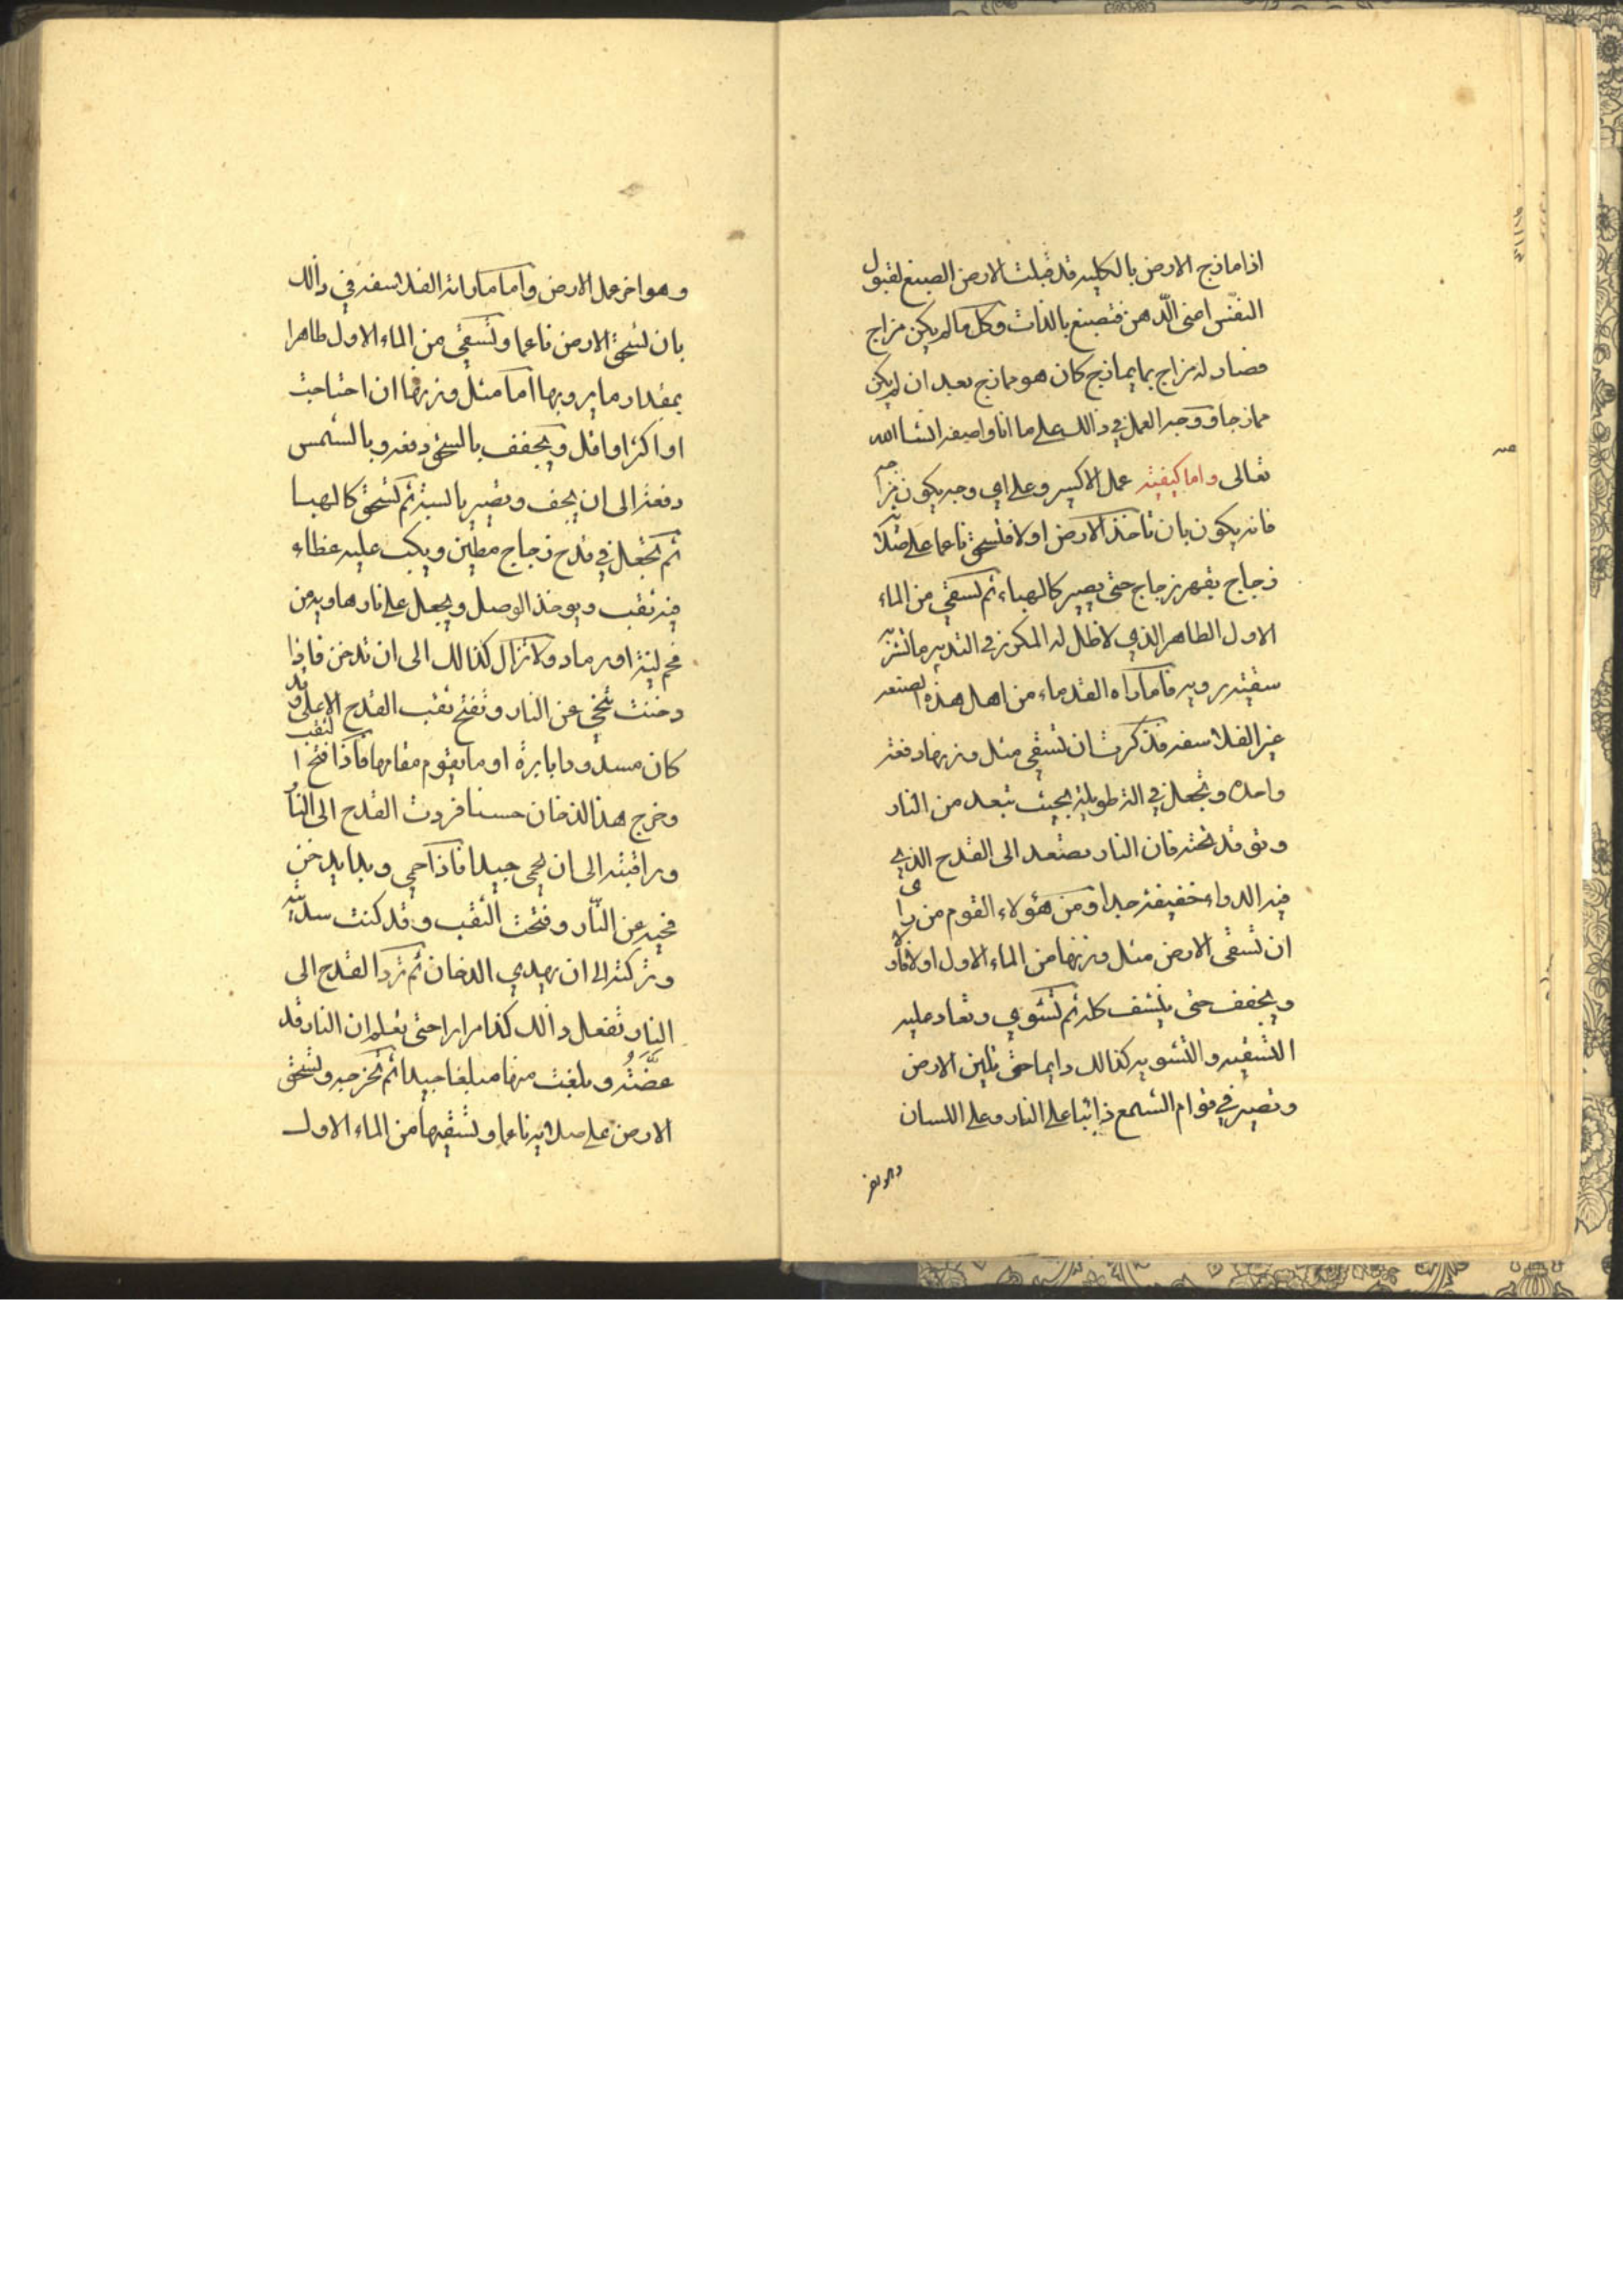 اذا مازج الارض بالكليه قد قبلت الارض الصبغ لقبول
النفس اعنى الدّهن فتصبغ بالذات وكل ما لم يكن مزاج
فصار له مزاج بما يمازج كان هو ممازج بعد ان لم يكن
ممازجا ووجه العمل في ذالك على ما انا واصفه انشا الله
تعالى واما كيفيته عمل الاكسير وعلى اي وجه يكون مزاجه
فانه يكون بان تاخذ الارض اولا فتسحق ناعما على صلاية
زجاج بفهر زجاج حتى يصير كالهباء ثم تسقى من الماء
الاول الطاهر الذي لا ظل له المكرر في التدبير ما تشربه
سقيته برويه فاما راه القدماء من اهل هذه الصنعه
غير الفلاسفه فذكرت ان تسقى مثل وزنها دفعة
واحده وتجعل في الة طويلة بحيث تبعد من النار
وتوقد تحته فان النار تصعد الى القدح الذي
فيه الدواء خفيفه جدا ومن هؤلاء القوم من راى
ان تسقى الارض مثل وزنها من الماء الاول اولا فاولا
ويجفف حتى ينشف كله ثم تشوي وتعاد عليه
التسقيه والتشويه كذالك دايما حتى تلين الارض
وتصير في قوام الشمع ذائبا على النار وعلى اللسان
وهو اخر
وهو اخر عمل الارض واما ما راته الفلاسفه في ذالك
بان تسحق الارض ناعما وتسقى من الماء الاول طاهرا
بمقدار ما يرويها اما مثل وزنها ان احتاجت
او اكثر او اقل ويجفف بالسحق دفعه وبالشمس
دفعة الى ان يجف وتصير يابسة ثم تسحق كالهبا
ثم تجعل في قدح زجاج مطين ويكب عليه غطاء
فيه ثقب ويوخذ الوصل ويجعل على نار هاويه من
فحم لينة او رماد ولا تزال كذالك الى ان تدخن فاذا
دخنت تنحي عن النار وتفتح ثقب القدح الاعلى وقد
كان مسدودا بابرة او ما يقوم مقامها فاذا فتح الثقب
وخرج هذ الدخان حسنا فردت القدح الى النار
وراقبته الى ان يحمى جيدا فاذا حمي وبدا يدخن
فنحيه عن النّار وفتحت الثقب وقد كنت سددته
وتركته الى ان يهدي الدخان ثم ترد القدح الى
النار تفعل ذالك كذا مرارا حتى تعلم ان النار قد
عضّته وبلغت منها مبلغا جيدا ثم تخرجه وتسحق
الارض على صلايه ناعما وتسقيها من الماء الاول